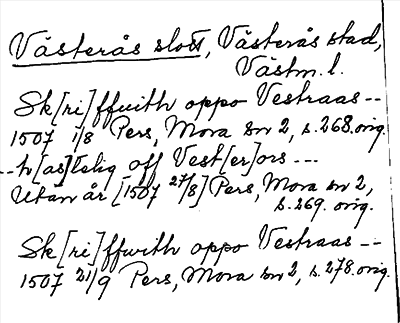 Västerås slott, Västerås stad,
Västm. l.
Sk[ri]ffwith oppo Vestraas --
1507 1/8 Pers, Mora sn 2, s. 268. orig.
--tv[as]telig off Vest[er]ors ---
Utan år [1507 27/8] Pers, Mora sn 2,
s. 269. orig.
Sk[ri]ffwith oppo Vestraas --
1507 21/9 Pers, Mora sn 2, s. 278. orig.